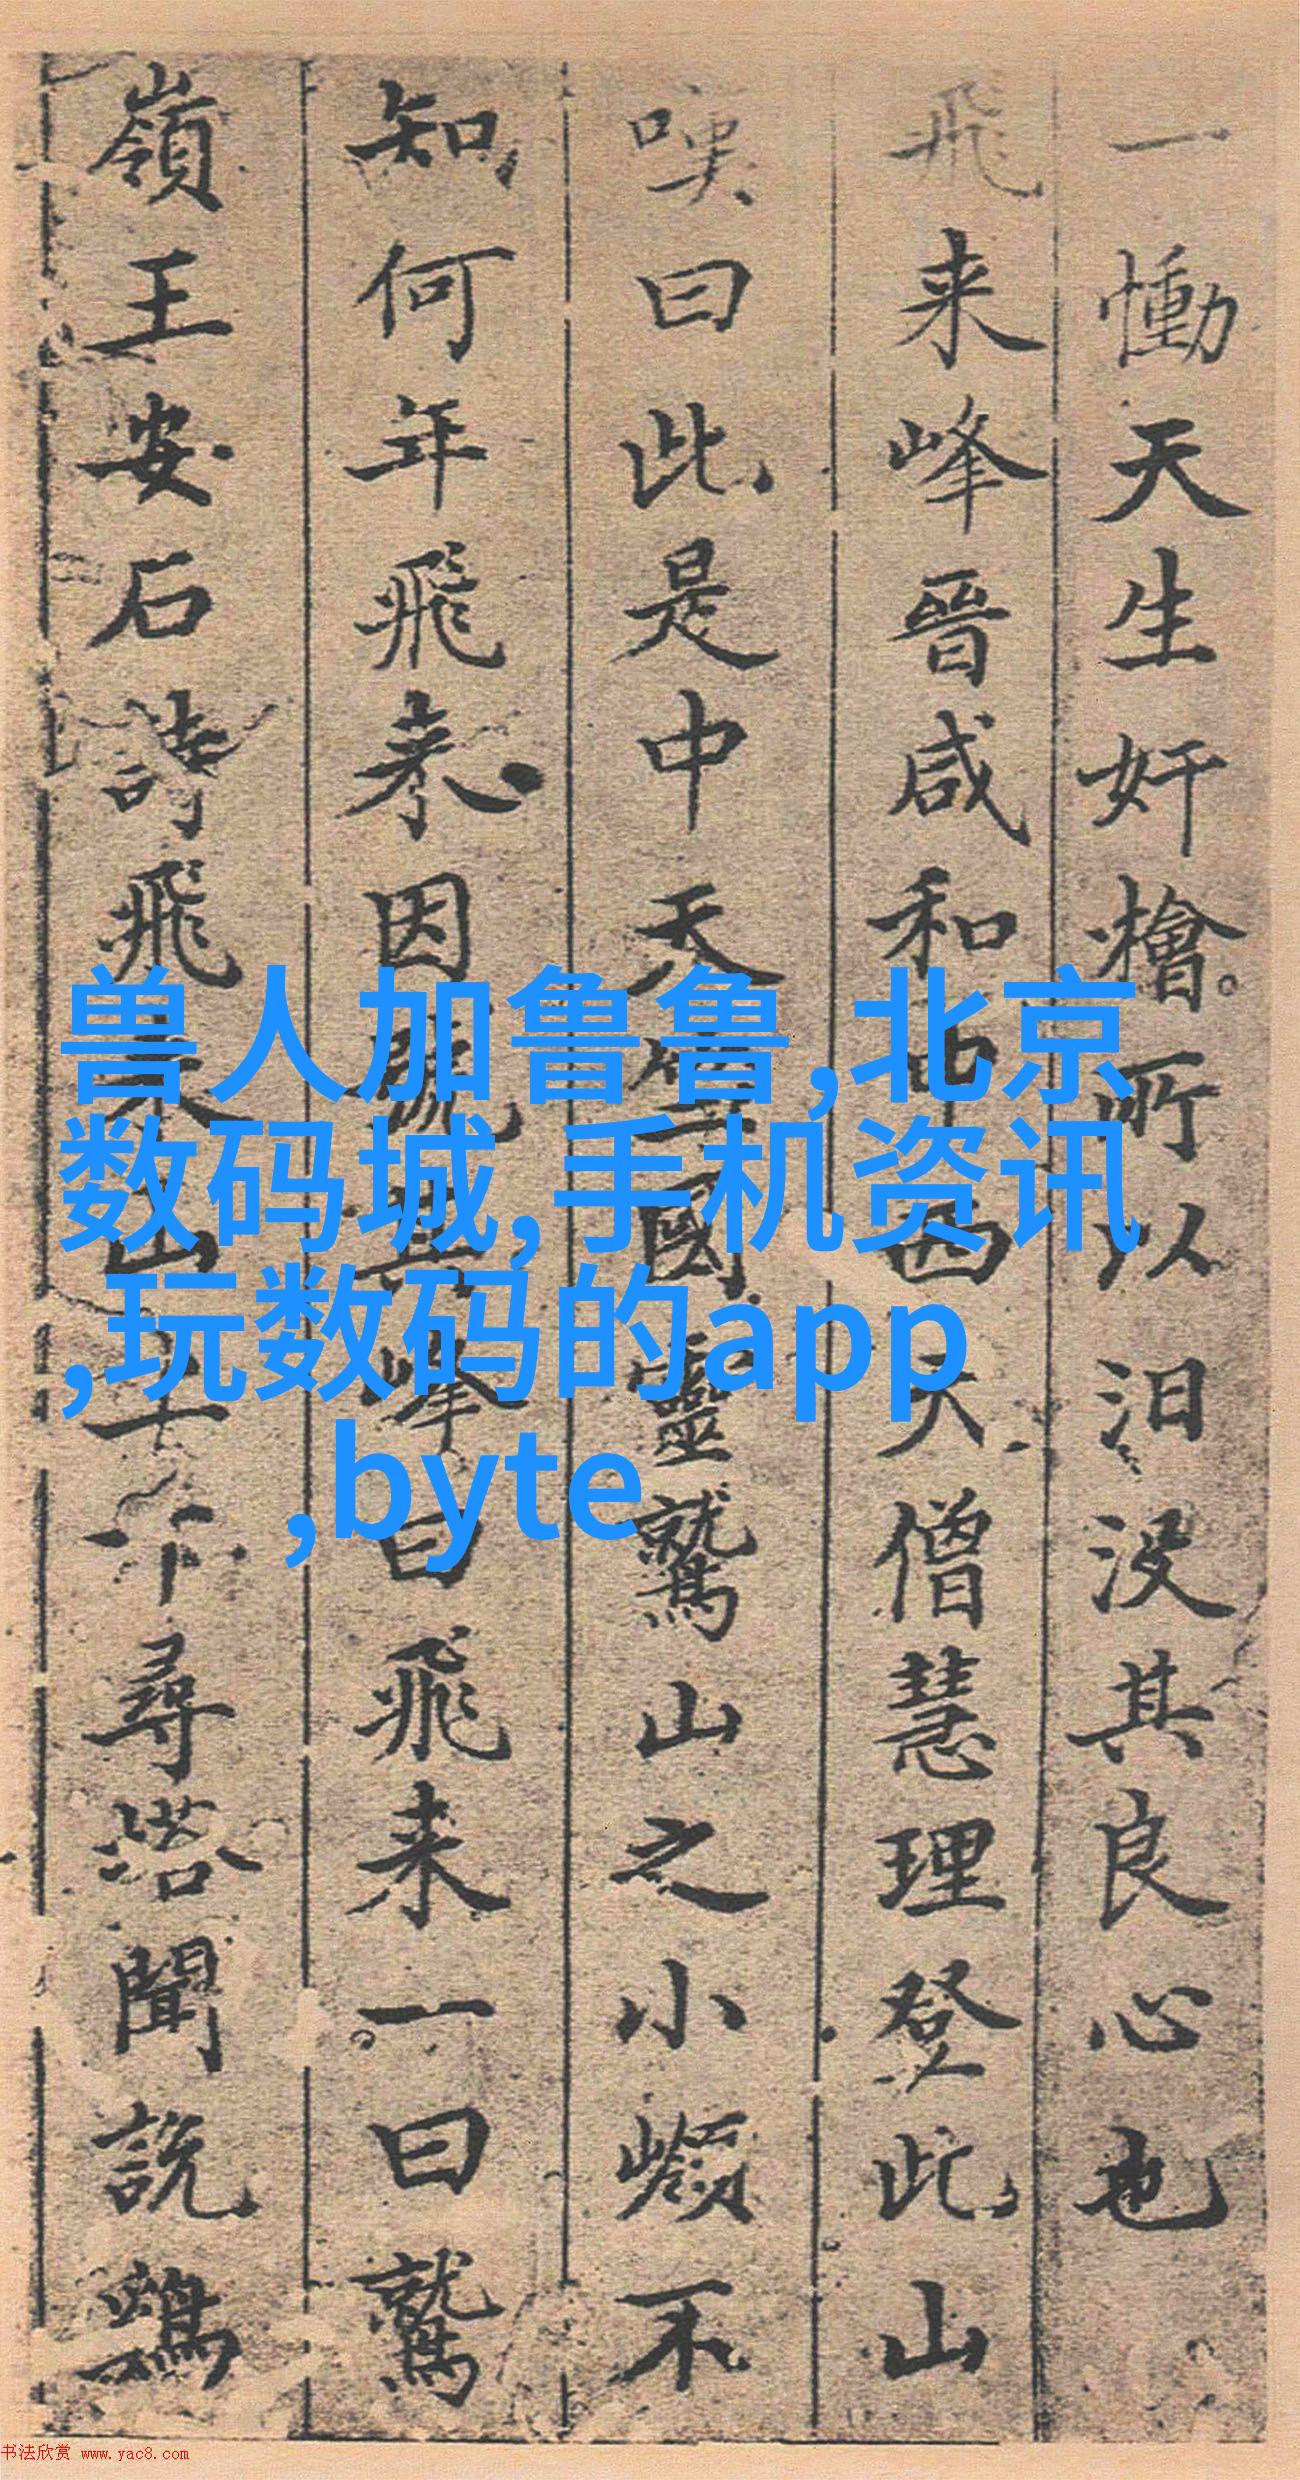 一慟天生奸檜所以汨没其良心也
飛来峰晉咸和中西天僧慧理登此山
嘆曰此是中天竺國靈鷲山之小嶺不
知何年飛來因號其峰曰飛来一曰鷲
嶺王安石詩飛来山上千尋塔聞説鷄
兽人加鲁鲁,北京
数码城,手机资讯
,玩数码的app
,byte
书法欣赏 www.yac8.com